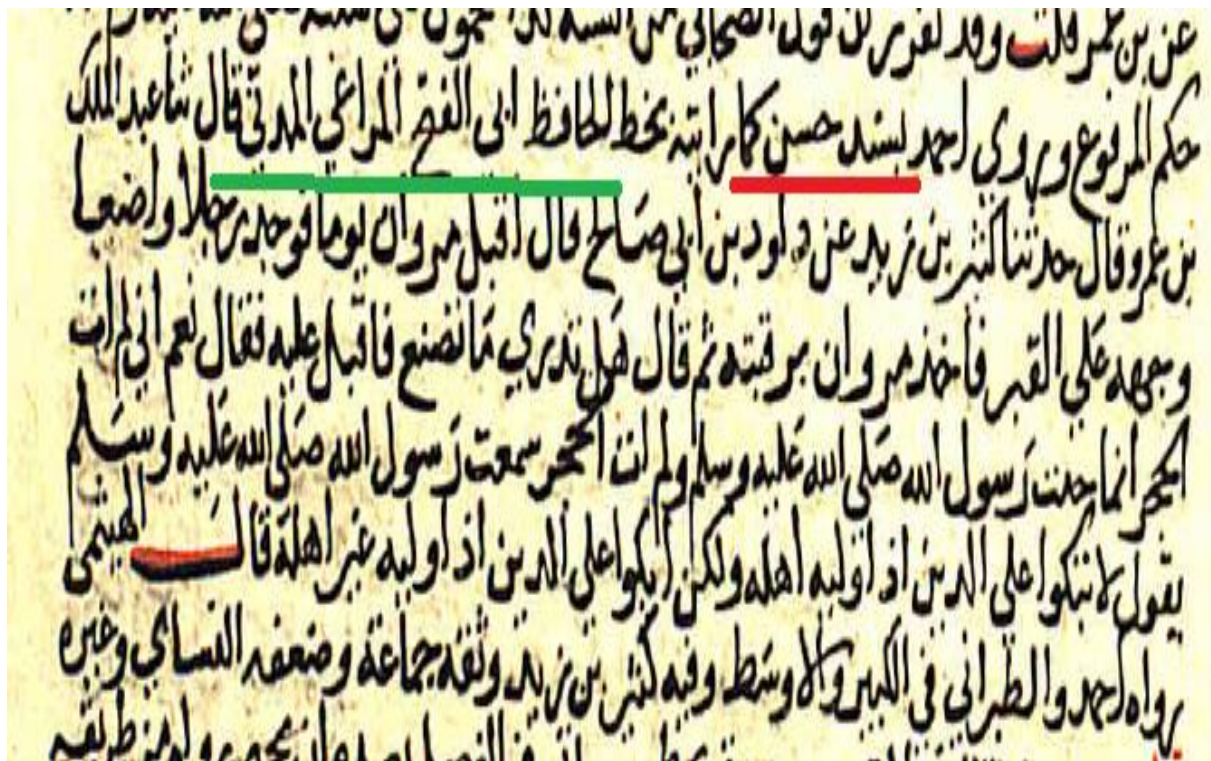 عن بن عمر قلت وقد تقرر ان قول الصحابي من السنة كذا
حكم المرفوع وروي احمد بسند حسن كما رايته بخط الحافظ ابي الفتح المراغي المدني قال ثنا عبد الملك
بن عمرو قال حدثنا كثير بن زيد عن داود بن ابي صالح قال اقبل مروان يوما فوجد رجلا واضعا
وجهه علي القبر فاخذ مروان برقبته ثم قال هل تدري ما تصنع فاقبل عليه فقال نعم اني لم ات
الحجر انما جئت رسول الله صلى الله عليه وسلم ولم ات الحجر سمعت رسول الله صلى الله عليه وسلم
يقول لا تبكوا علي الدين اذا وليه اهله ولكن ابكوا علي الدين اذا وليه غير اهله قال الهيثمي
رواه احمد والطبراني في الكبير والاوسط وفيه كثير بن زيد وثقه جماعة وضعفه النساي وغيره